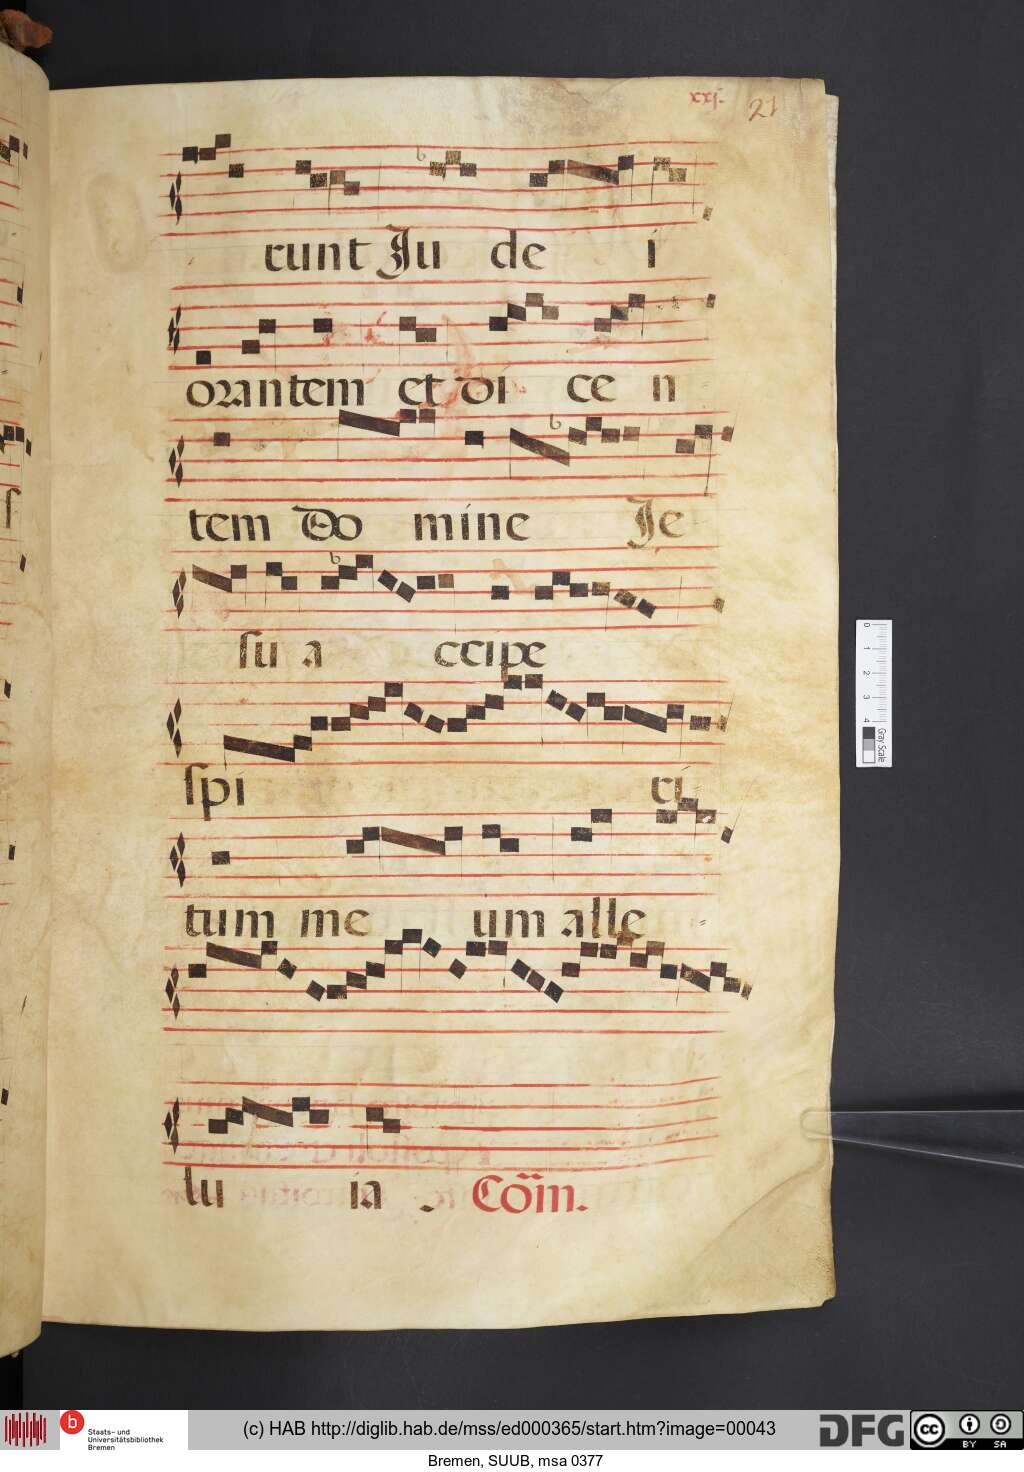 xxj.
21
runt Ju de i
orantem et di ce n
tem Do mine Je
su a ccipe
spi ri
tum me um alle
lu ia Cõm.
0 1 2 3 4
Gray Scale
b Staats- und Universitätsbibliothek Bremen
(c) HAB http://diglib.hab.de/mss/ed000365/start.htm?image=00043
DFG
cc BY SA
Bremen, SUUB, msa 0377